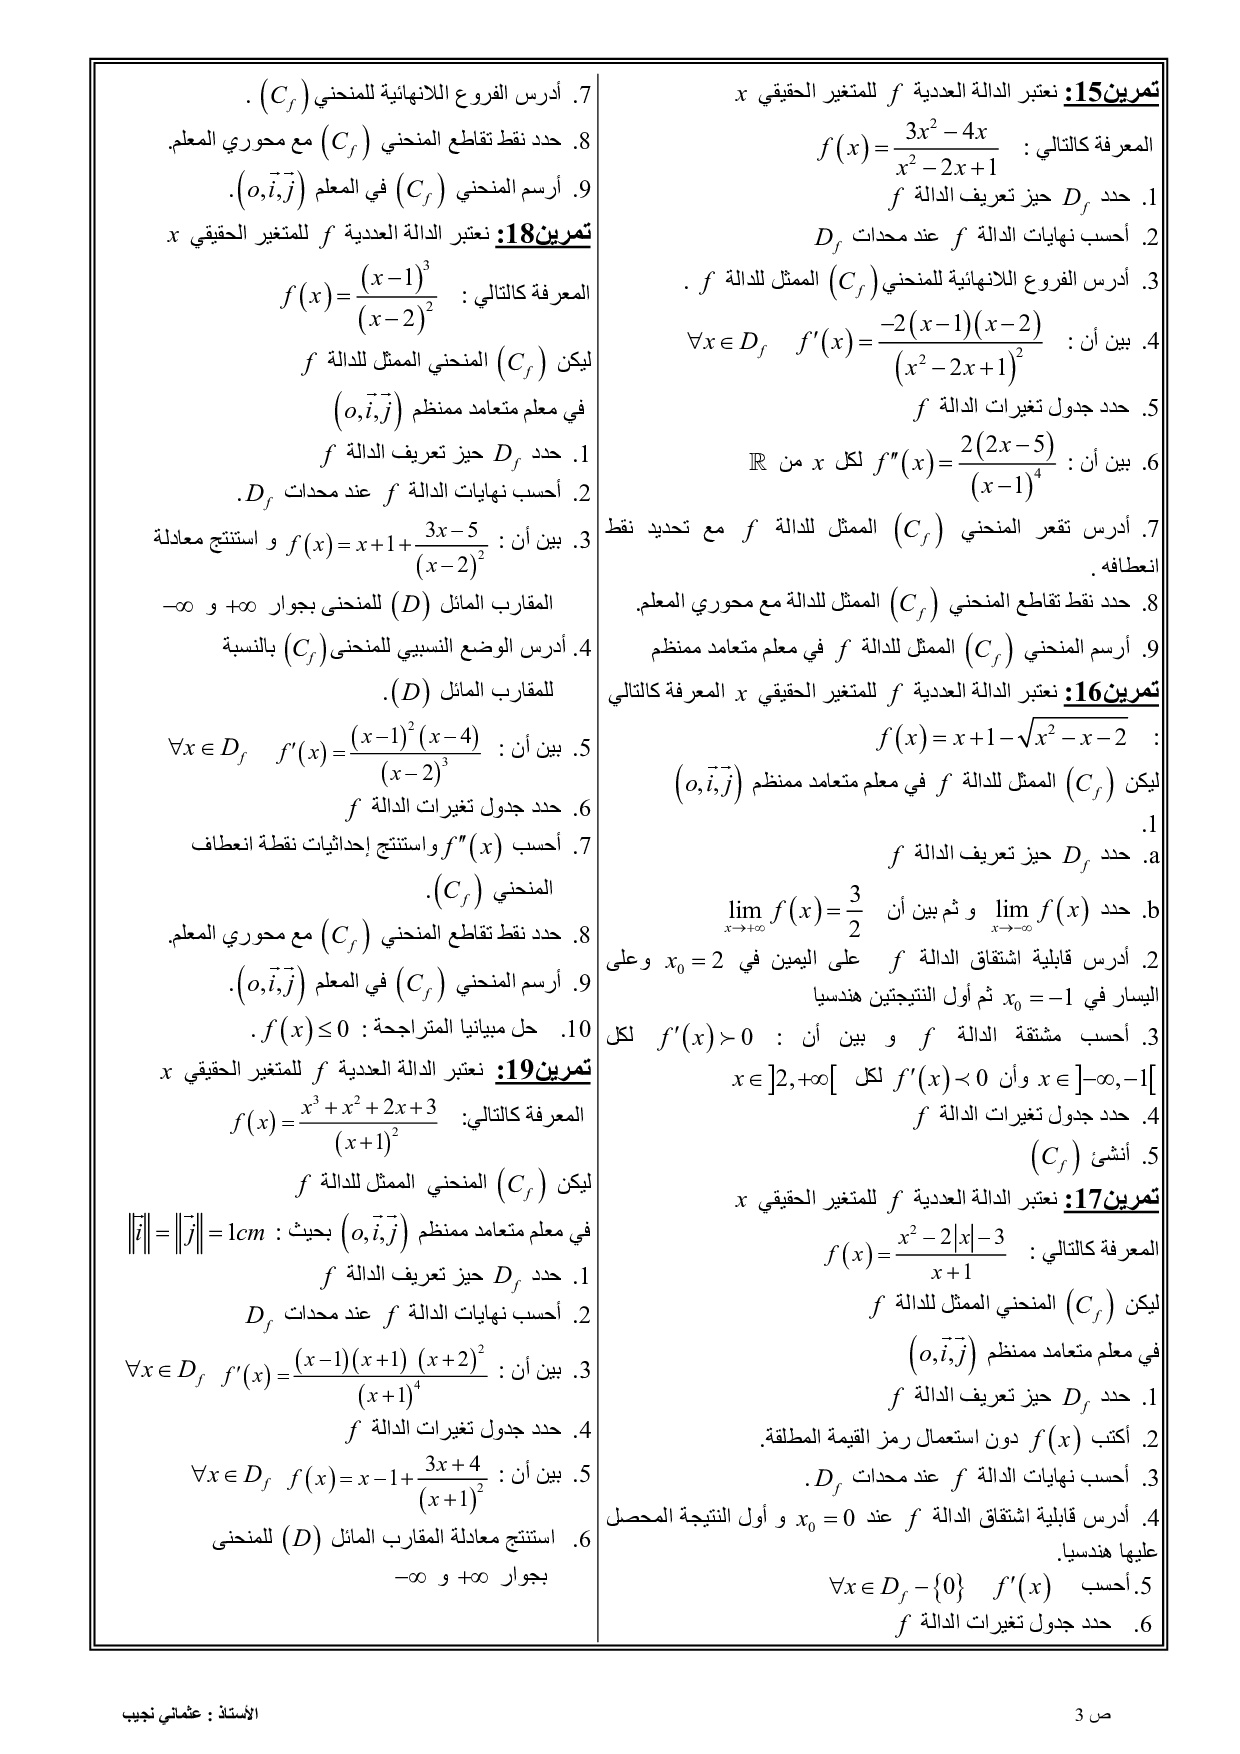 تمرين15: نعتبر الدالة العددية f للمتغير الحقيقي x
المعرفة كالتالي : f(x) = (3x² − 4x)/(x² − 2x + 1)
1. حدد D_f حيز تعريف الدالة f
2. أحسب نهايات الدالة f عند محدات D_f
3. أدرس الفروع اللانهائية للمنحني (C_f) الممثل للدالة f .
4. بين أن : f′(x) = −2(x−1)(x−2)/(x² − 2x + 1)² ∀x ∈ D_f
5. حدد جدول تغيرات الدالة f
6. بين أن : f″(x) = 2(2x−5)/(x−1)⁴ لكل x من ℝ
7. أدرس تقعر المنحني (C_f) الممثل للدالة f مع تحديد نقط
انعطافه .
8. حدد نقط تقاطع المنحني (C_f) الممثل للدالة مع محوري المعلم.
9. أرسم المنحني (C_f) الممثل للدالة f في معلم متعامد ممنظم
تمرين16: نعتبر الدالة العددية f للمتغير الحقيقي x المعرفة كالتالي
: f(x) = x + 1 − √(x² − x − 2)
ليكن (C_f) الممثل للدالة f في معلم متعامد ممنظم (o, i⃗, j⃗)
1.
a. حدد D_f حيز تعريف الدالة f
b. حدد lim_{x→−∞} f(x) و ثم بين أن lim_{x→+∞} f(x) = 3/2
2. أدرس قابلية اشتقاق الدالة f على اليمين في x₀ = 2 وعلى
اليسار في x₀ = −1 ثم أول النتيجتين هندسيا
3. أحسب مشتقة الدالة f و بين أن : f′(x) ≻ 0 لكل
x ∈ ]−∞, −1[ وأن f′(x) ≺ 0 لكل x ∈ ]2, +∞[
4. حدد جدول تغيرات الدالة f
5. أنشئ (C_f)
تمرين17: نعتبر الدالة العددية f للمتغير الحقيقي x
المعرفة كالتالي : f(x) = (x² − 2|x| − 3)/(x + 1)
ليكن (C_f) المنحني الممثل للدالة f
في معلم متعامد ممنظم (o, i⃗, j⃗)
1. حدد D_f حيز تعريف الدالة f
2. أكتب f(x) دون استعمال رمز القيمة المطلقة.
3. أحسب نهايات الدالة f عند محدات D_f .
4. أدرس قابلية اشتقاق الدالة f عند x₀ = 0 و أول النتيجة المحصل
عليها هندسيا.
5. أحسب f′(x) ∀x ∈ D_f − {0}
6. حدد جدول تغيرات الدالة f
7. أدرس الفروع اللانهائية للمنحني (C_f) .
8. حدد نقط تقاطع المنحني (C_f) مع محوري المعلم.
9. أرسم المنحني (C_f) في المعلم (o, i⃗, j⃗).
تمرين18: نعتبر الدالة العددية f للمتغير الحقيقي x
المعرفة كالتالي : f(x) = (x−1)³/(x−2)²
ليكن (C_f) المنحني الممثل للدالة f
في معلم متعامد ممنظم (o, i⃗, j⃗)
1. حدد D_f حيز تعريف الدالة f
2. أحسب نهايات الدالة f عند محدات D_f.
3. بين أن : f(x) = x + 1 + (3x − 5)/(x−2)² و استنتج معادلة
المقارب المائل (D) للمنحنى بجوار +∞ و −∞
4. أدرس الوضع النسبيي للمنحنى (C_f) بالنسبة
للمقارب المائل (D).
5. بين أن : f′(x) = (x−1)²(x−4)/(x−2)³ ∀x ∈ D_f
6. حدد جدول تغيرات الدالة f
7. أحسب f″(x) واستنتج إحداثيات نقطة انعطاف
المنحني (C_f).
8. حدد نقط تقاطع المنحني (C_f) مع محوري المعلم.
9. أرسم المنحني (C_f) في المعلم (o, i⃗, j⃗).
10. حل مبيانيا المتراجحة : f(x) ≤ 0 .
تمرين19: نعتبر الدالة العددية f للمتغير الحقيقي x
المعرفة كالتالي: f(x) = (x³ + x² + 2x + 3)/(x+1)²
ليكن (C_f) المنحني الممثل للدالة f
في معلم متعامد ممنظم (o, i⃗, j⃗) بحيث : ‖i⃗‖ = ‖j⃗‖ = 1cm
1. حدد D_f حيز تعريف الدالة f
2. أحسب نهايات الدالة f عند محدات D_f
3. بين أن : f′(x) = (x−1)(x+1) (x+2)²/(x+1)⁴ ∀x ∈ D_f
4. حدد جدول تغيرات الدالة f
5. بين أن : f(x) = x − 1 + (3x + 4)/(x+1)² ∀x ∈ D_f
6. استنتج معادلة المقارب المائل (D) للمنحنى
بجوار +∞ و −∞
ص 3
الأستاذ : عثماني نجيب